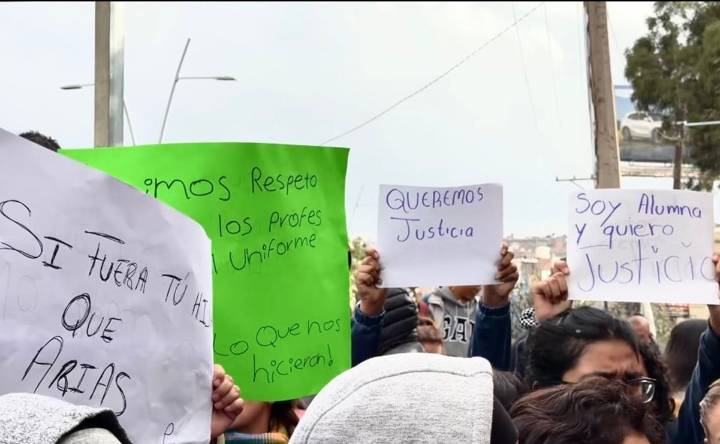 SI FUERA TÚ HI
QUE
ARIAS
imos Respeto
los Profes
Uniforme
Lo Que nos
hicieron!
QUEREMOS
Justicia
Soy Alumna
y quiero
Justicia
GAP